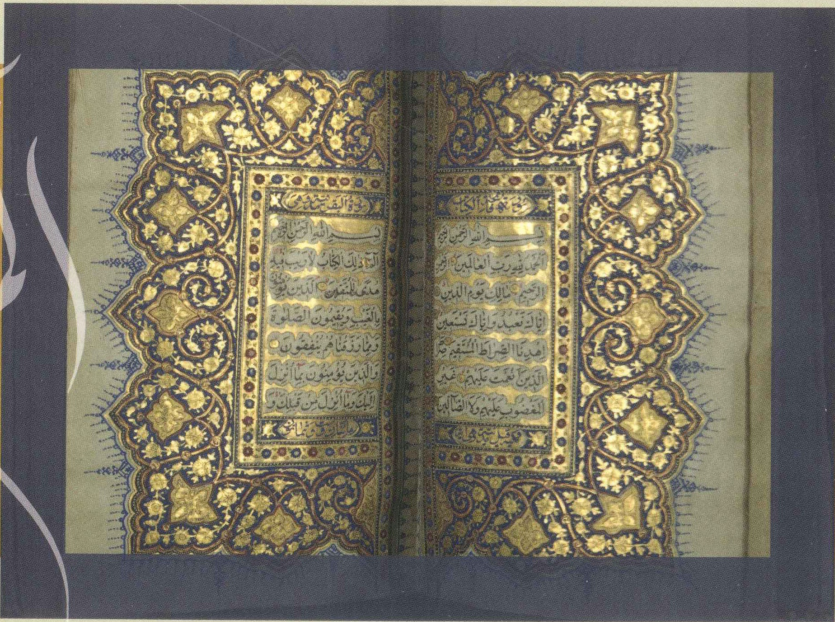 سورة فاتحة الكتاب
بسم الله الرحمن الرحيم
الحمد لله رب العالمين الرحمن
الرحيم مالك يوم الدين
إياك نعبد وإياك نستعين
اهدنا الصراط المستقيم صراط
الذين أنعمت عليهم غير
المغضوب عليهم ولا الضالين
بسم الله الرحمن الرحيم
الم ذلك الكتاب لا ريب فيه
هدى للمتقين الذين يؤمنون
بالغيب ويقيمون الصلوة
ومما رزقناهم ينفقون
والذين يؤمنون بما أنزل
إليك وما أنزل من قبلك